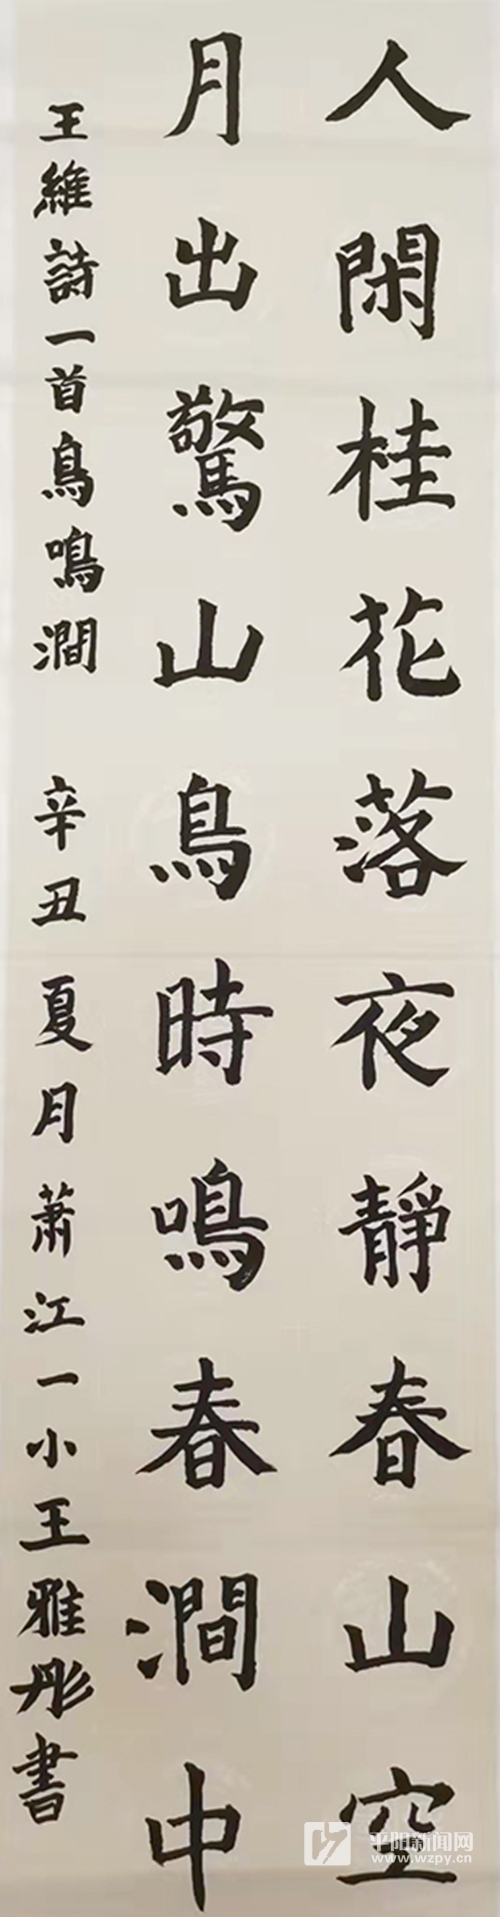 人閑桂花落夜靜春山空
月出驚山鳥時鳴春澗中
王維詩一首鳥鳴澗 辛丑夏月蕭江一小王雅彤書
平阳新闻网
www.wzpy.cn